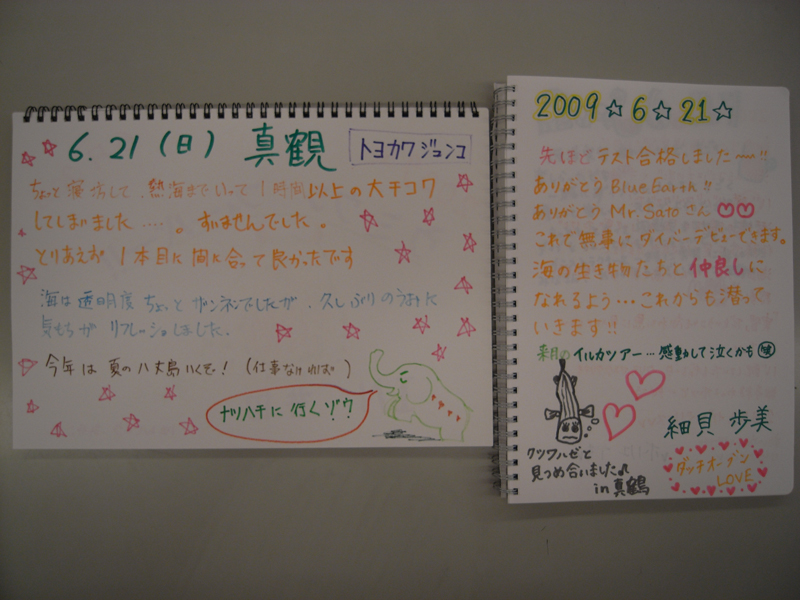 6.21(日) 真観
トヨカワジュンコ
ちょっと寝坊して、熱海までいって1時間以上の大チコク
してしまいました....。すいませんでした。
とりあえず1本目に間に合って良かったです
海は透明度ちょっとザンネンでしたが、久しぶりのうみに
気もちがリフレッシュしました。
今年は夏の八丈島いくぞ!(仕事なければ)
ナツハチに行くゾウ
2009☆6☆21☆
先ほどテスト合格しました〜!!
ありがとうBlue Earth!!
ありがとうMr.Satoさん♡♡
これで無事にダイバーデビューできます。
海の生き物たちと仲良しに
なれるよう...これからも潜って
いきます!!
来月のイルカツアー...感動して泣くかも
細貝 歩美
クツワハゼと
見つめ合いました♪
in 真鶴
ダッチオーブン
LOVE